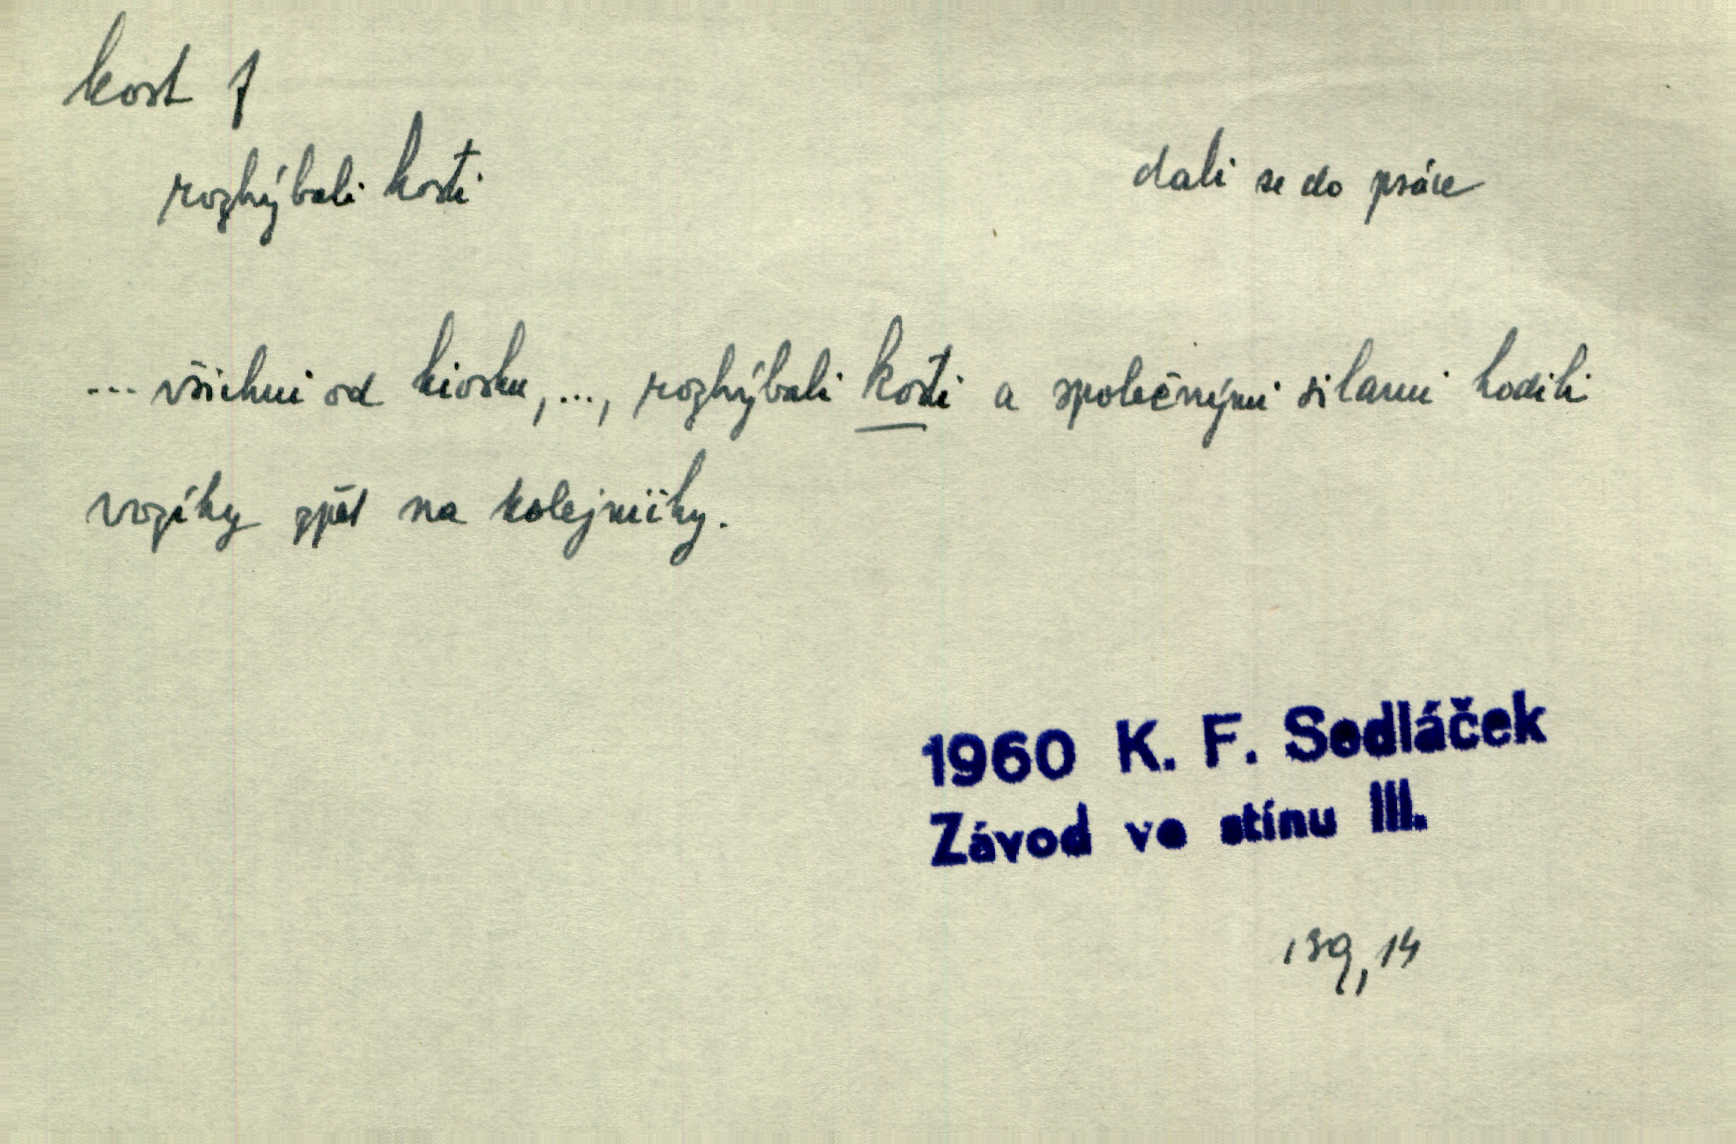 kost f
rozhýbali kosti
dali se do práce
... všichni od kiosku, ..., rozhýbali kosti a společnými silami hodili
vozíky zpět na kolejničky.
1960 K. F. Sedláček
Závod ve stínu III.
139, 14